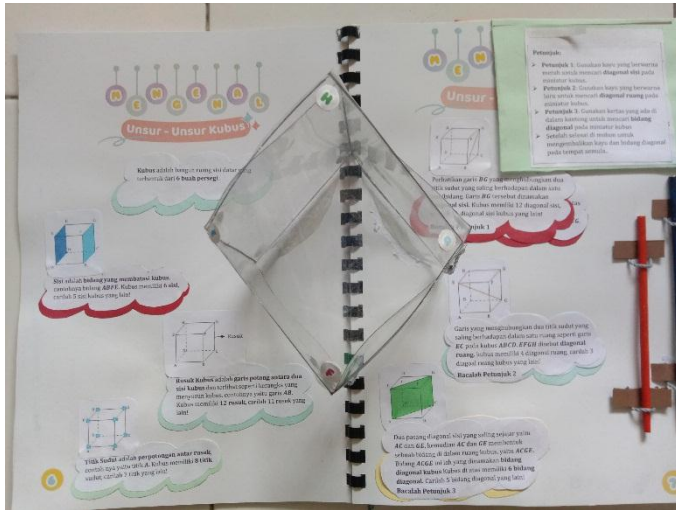 MENGENAL
Unsur - Unsur Kubus
Kubus adalah bangun ruang sisi datar yang
terbentuk dari 6 buah persegi.
Sisi adalah bidang yang membatasi kubus,
contohnya bidang ABFE. Kubus memiliki 6 sisi,
carilah 5 sisi kubus yang lain!
RUSUK
Rusuk Kubus adalah garis potong antara dua
sisi kubus dan terlihat seperti kerangka yang
menyusun kubus, contohnya yaitu garis AB.
Kubus memiliki 12 rusuk, carilah 11 rusuk yang
lain!
Titik Sudut adalah perpotongan antar rusuk,
contohnya yaitu titik A. Kubus memiliki 8 titik
sudut, carilah 7 titik yang lain!
6
H
MEN
Unsur -
Petunjuk:
Petunjuk 1: Gunakan kayu yang berwarna
merah untuk mencari diagonal sisi pada
miniatur kubus.
Petunjuk 2: Gunakan kayu yang berwarna
biru untuk mencari diagonal ruang pada
miniatur kubus.
Petunjuk 3: Gunakan kertas yang ada di
dalam kantong untuk mencari bidang
diagonal pada miniatur kubus
Setelah selesai di mohon untuk
mengembalikan kayu dan bidang diagonal
pada tempat semula.
Perhatikan garis BG yang menghubungkan dua
titik sudut yang saling berhadapan dalam satu
bidang. Garis BG tersebut dinamakan
sisi. Kubus memiliki 12 diagonal sisi,
diagonal sisi kubus yang lain!
1
Garis yang menghubungkan dua titik sudut yang
saling berhadapan dalam satu ruang seperti garis
pada kubus ABCD. EFGH disebut diagonal
ruang, kubus memiliki 4 diagonal ruang, carilah 3
diagonal ruang kubus yang lain!
Bacalah Petunjuk 2
Dua pasang diagonal sisi yang saling sejajar yaitu
AC dan GE, kemudian AC dan GE membentuk
sebuah bidang di dalam ruang kubus, yaitu ACGE.
Bidang ACGE inilah yang dinamakan bidang
diagonal kubus Kubus di atas memiliki 6 bidang
diagonal. Carilah 5 bidang diagonal yang lain!
Bacalah Petunjuk 3
7